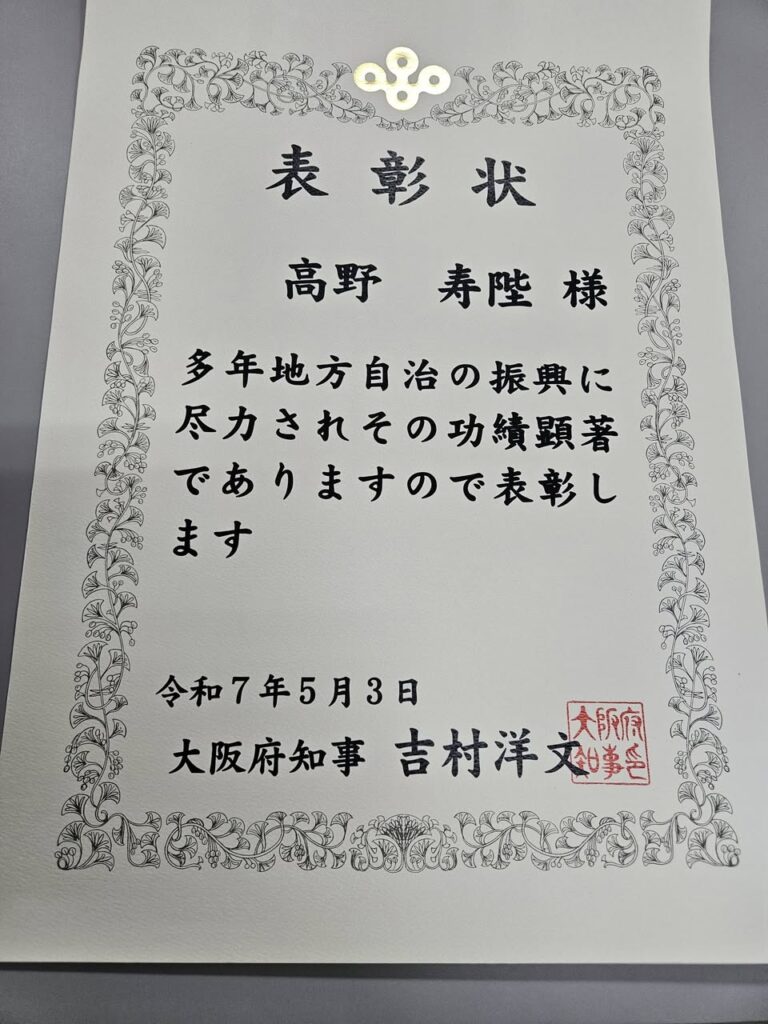 表彰状
高野 寿陛 様
多年地方自治の振興に
尽力されその功績顕著
でありますので表彰し
ます
令和7年5月3日
大阪府知事 吉村洋文
大阪府
知事印